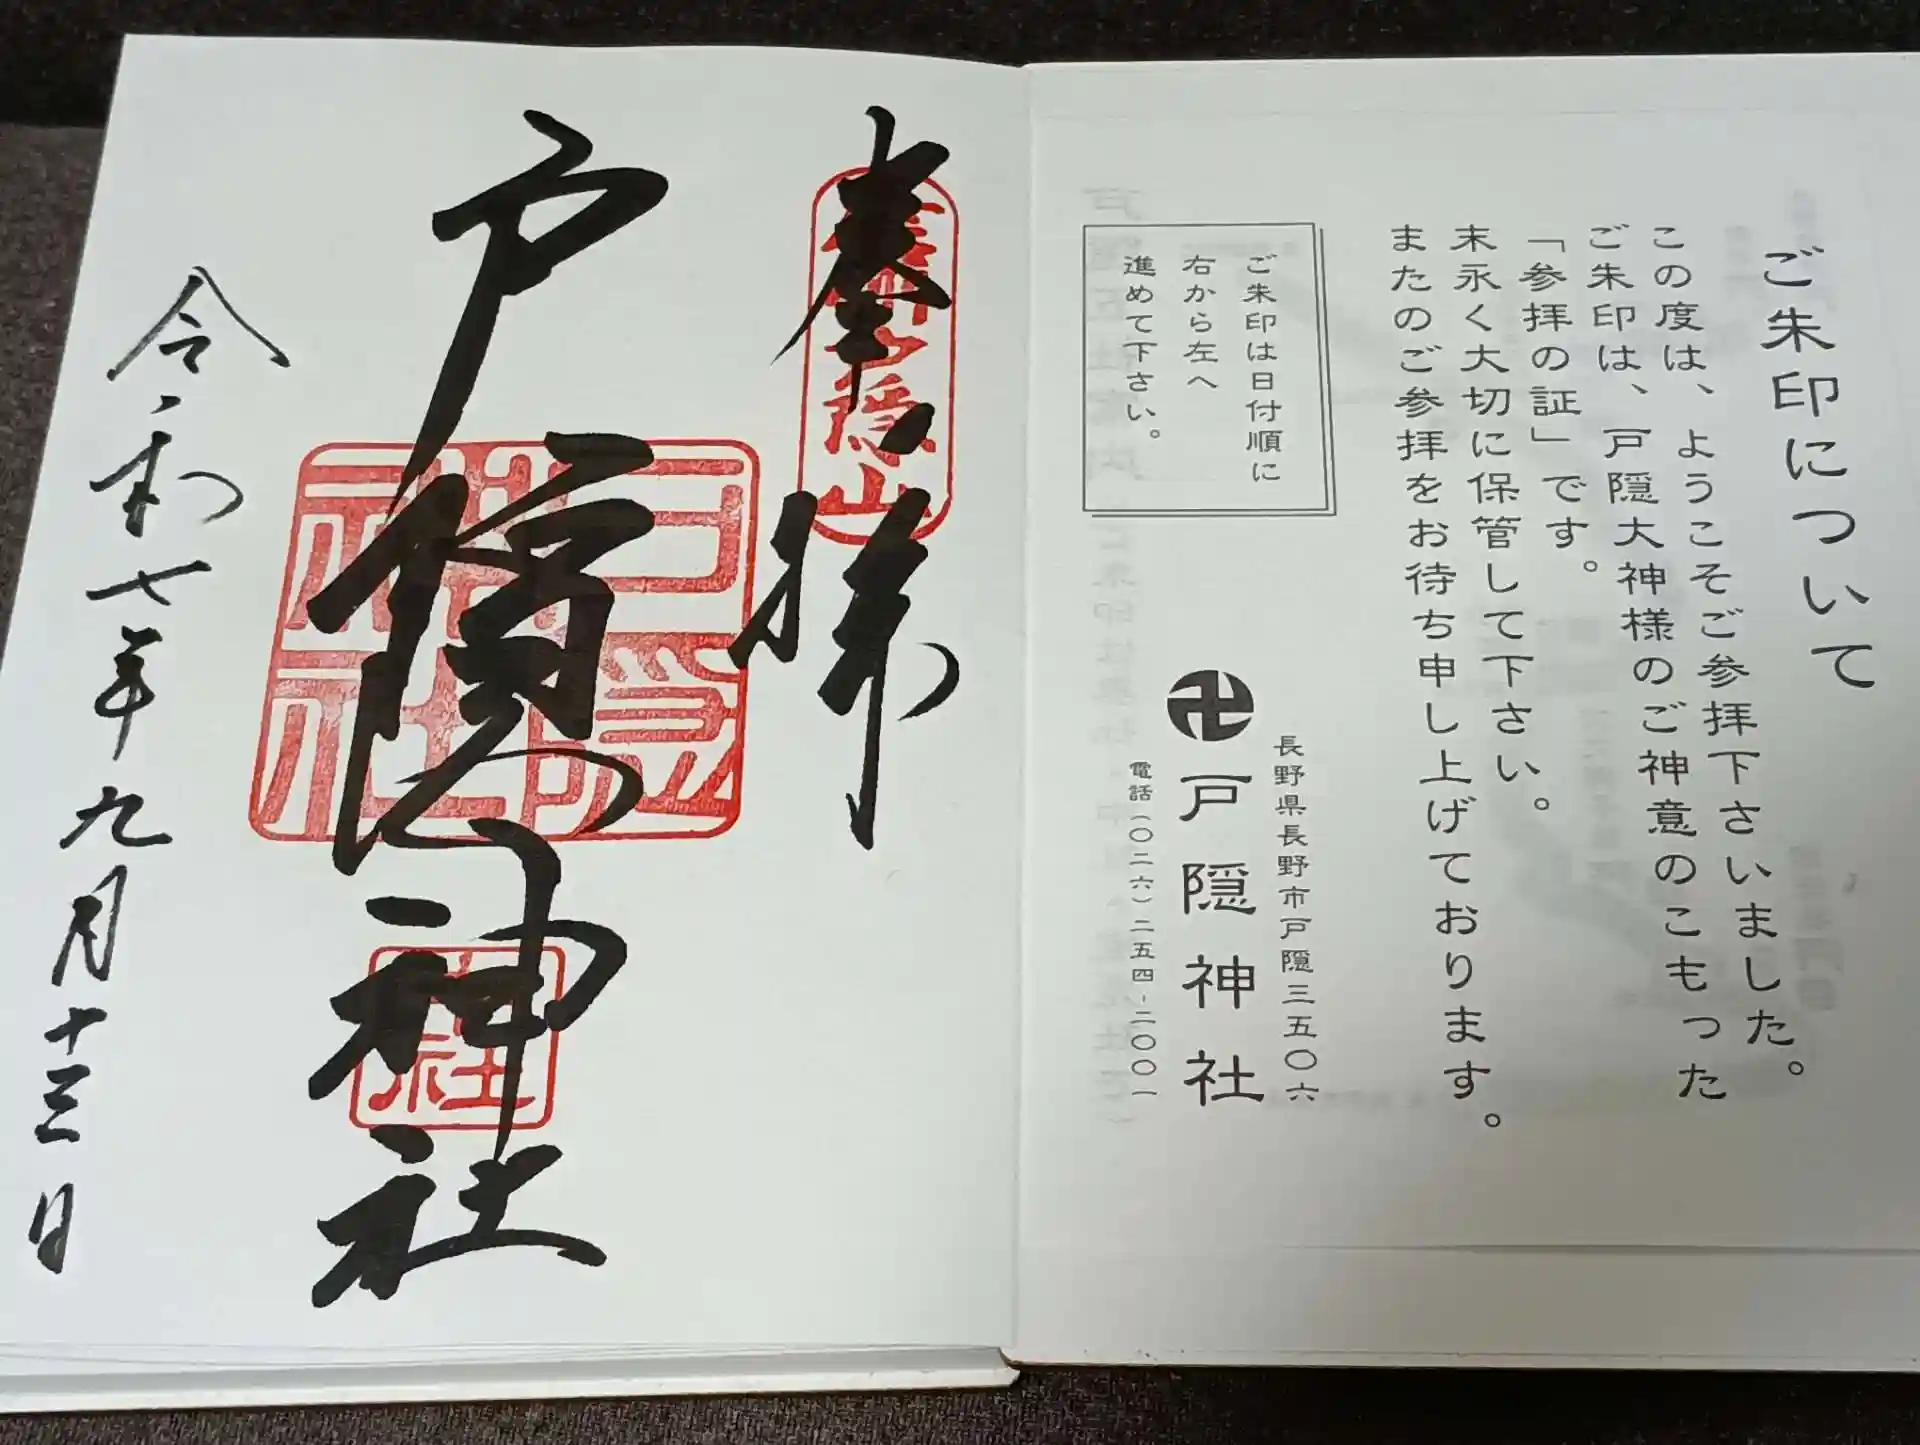 ご朱印について
この度は、ようこそご参拝下さいました。
ご朱印は、戸隠大神様のご神意のこもった
「参拝の証」です。
末永く大切に保管して下さい。
またのご参拝をお待ち申し上げております。
ご朱印は日付順に
右から左へ
進めて下さい。
長野県長野市戸隠三五〇六
卍戸隠神社
電話(〇二六)二五四-二〇〇一
奉拝
戸隠神社
令和七年九月十三日